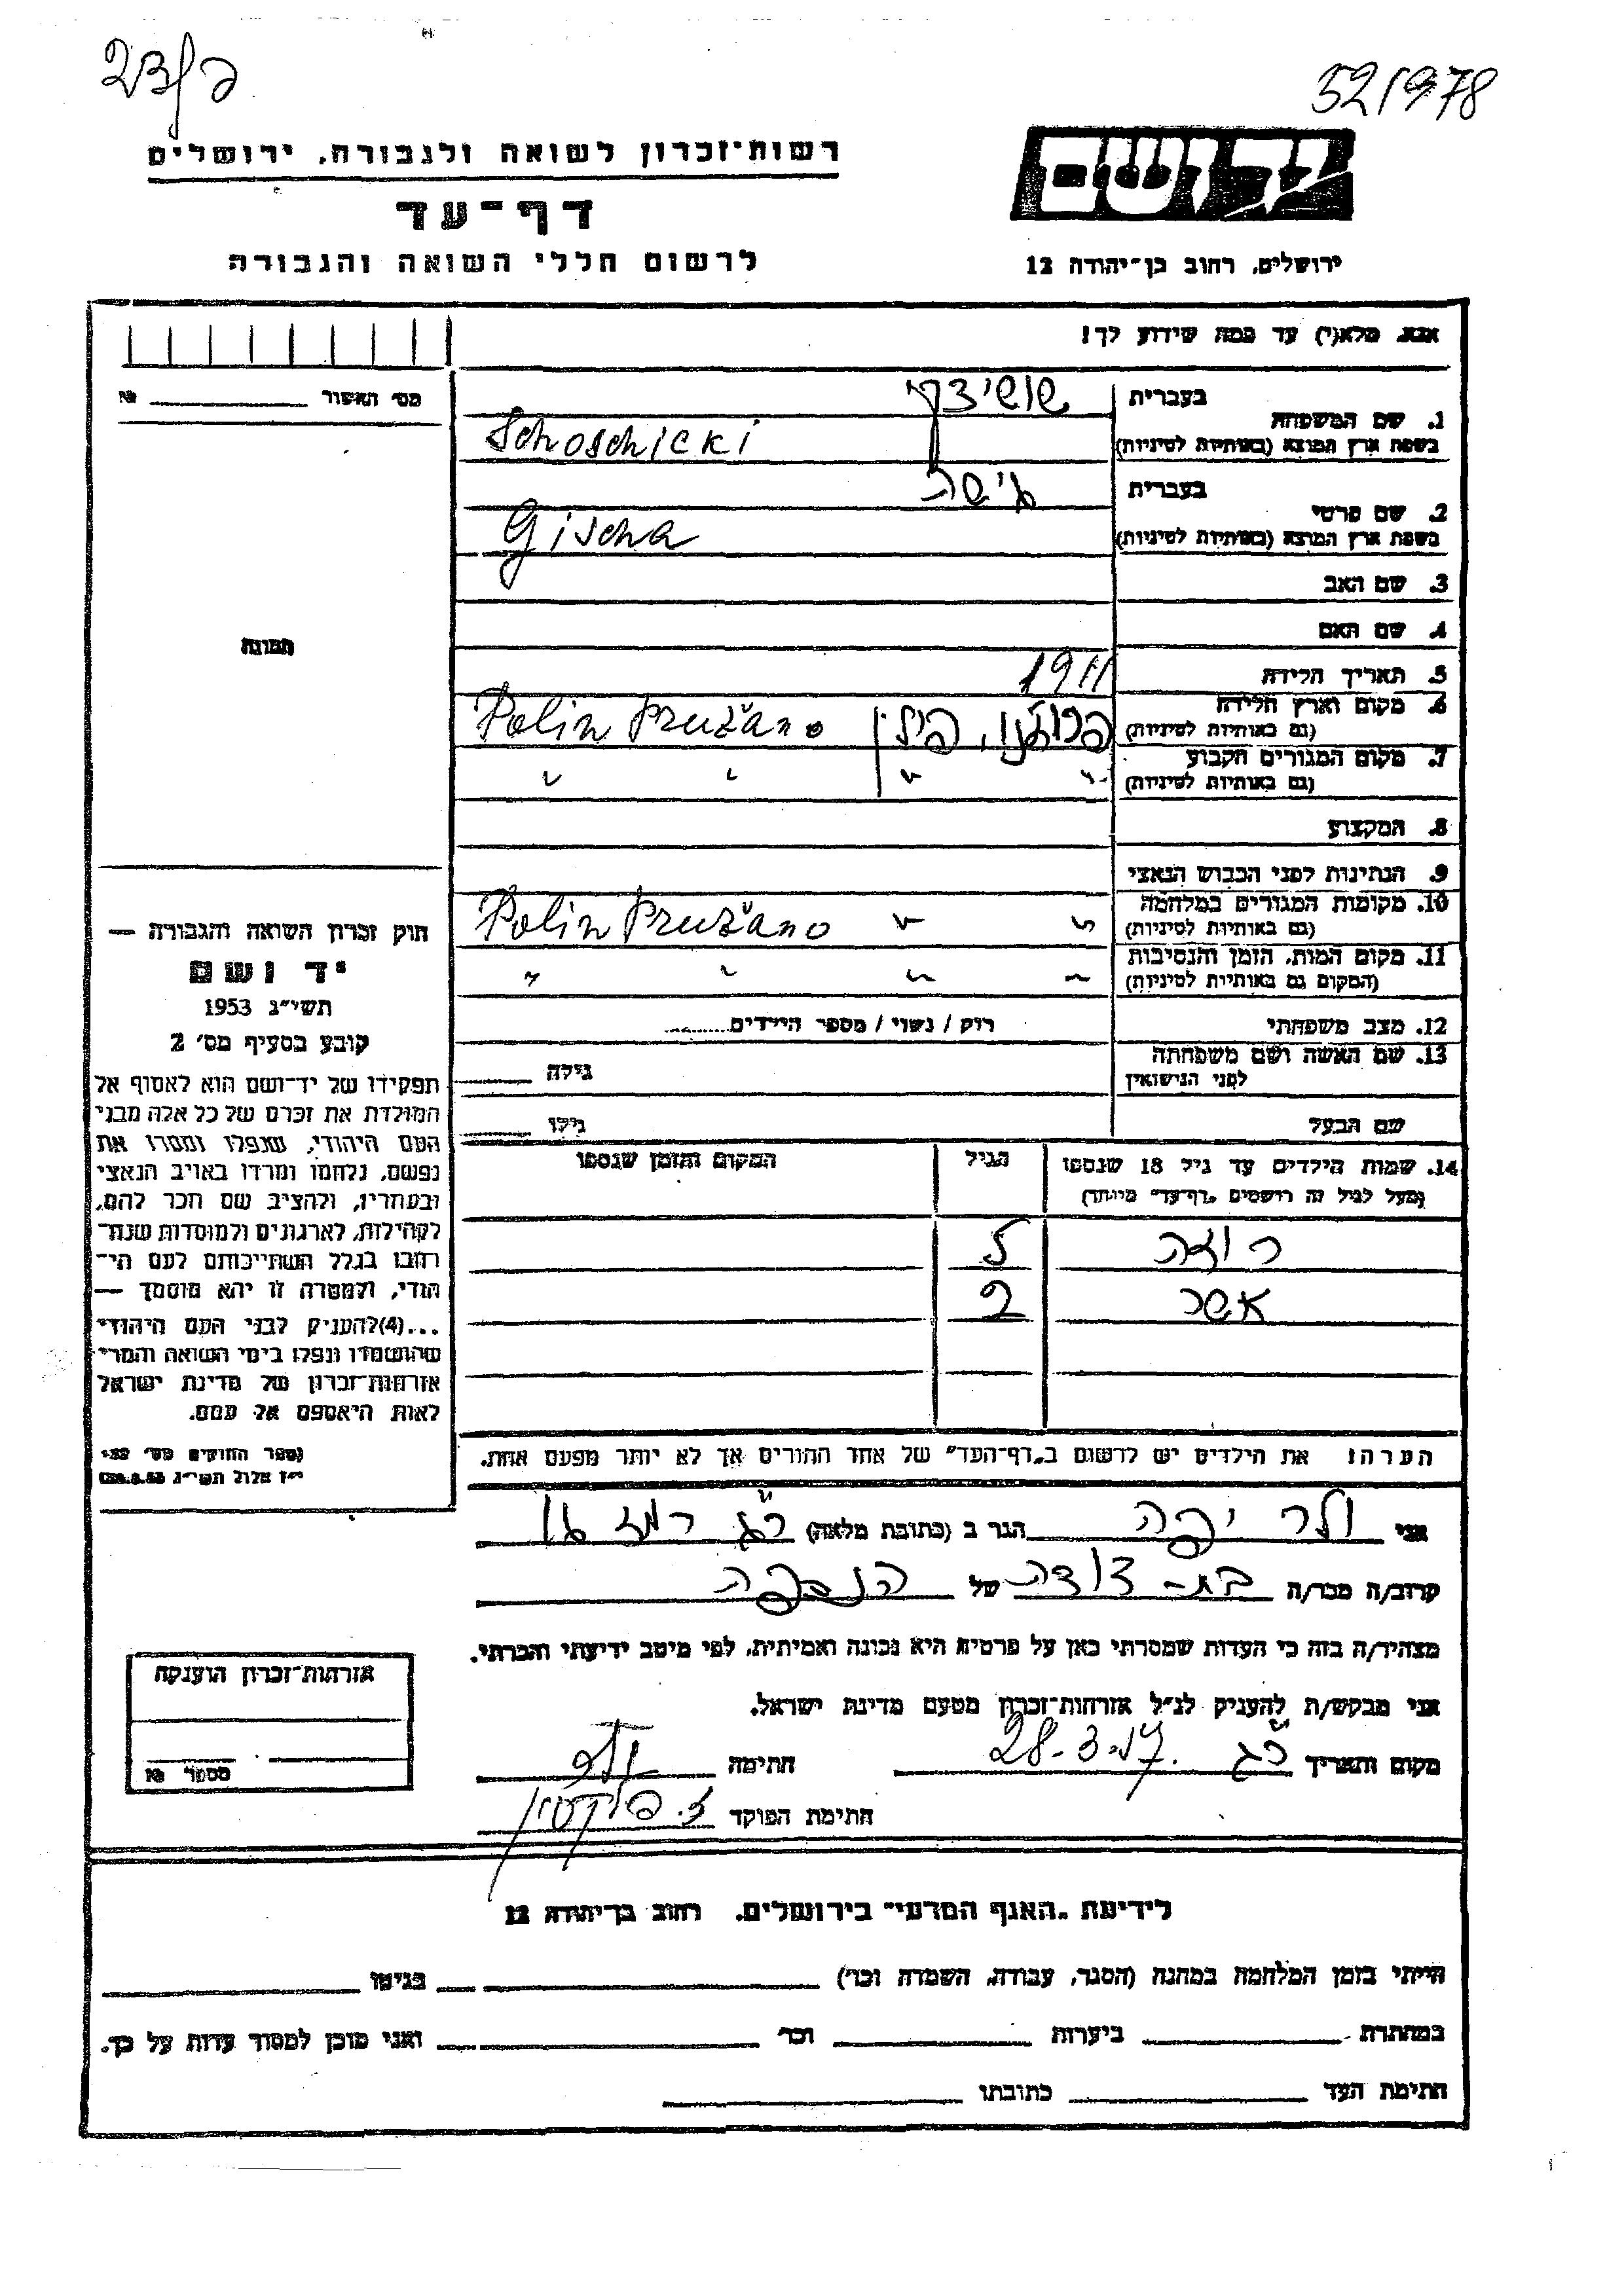 52/978
רשות־זכרון לשואה ולגבורה, ירושלים
יד ושם
דף־עד
לרשום חללי השואה והגבורה
ירושלים, רחוב בן־יהודה 12
אנא, מלא(י) עד כמה שידוע לך!
מס׳ האשור № 
1. שם המשפחה
בעברית
בשפת ארץ המוצא (באותיות לטיניות)
Schoschicki
2. שם פרטי
בעברית גישה
בשפת ארץ המוצא (באותיות לטיניות)
Gischa
3. שם האב
4. שם האם
תמונה
5. תאריך הלידה 1911
6. מקום וארץ הלידה
(גם באותיות לטיניות)
פרוז'נו, פולין Polin Pružano
7. מקום המגורים הקבוע
(גם באותיות לטיניות)
" " " "
8. המקצוע
9. הנתינות לפני הכבוש הנאצי
10. מקומות המגורים במלחמה
(גם באותיות לטיניות)
" " Polin Pružano
11. מקום המות, הזמן והנסיבות
(המקום גם באותיות לטיניות)
" " " "
12. מצב משפחתי רוק / נשוי / מספר הילדים........
13. שם האשה ושם משפחתה
לפני הנישואין
גילה
שם הבעל גילו
14. שמות הילדים עד גיל 18 שנספו הגיל המקום והזמן שנספו
(מעל לגיל זה רושמים „דף־עד״ מיוחד)
רוזה
אשר 2
הערה: את הילדים יש לרשום ב„דף־העד״ של אחד ההורים אך לא יותר מפעם אחת.
חוק זכרון השואה והגבורה —
יד ושם
תשי״ג 1953
קובע בסעיף מס׳ 2
תפקידו של יד־ושם הוא לאסוף אל
המולדת את זכרם של כל אלה מבני
העם היהודי, שנפלו ומסרו את
נפשם, נלחמו ומרדו באויב הנאצי
ובעוזריו, ולהציב שם וזכר להם,
לקהילות, לארגונים ולמוסדות שנח־
רבו בגלל השתייכותם לעם הי־
הודי, ולמטרה זו יהא מוסמך —
...(4) להעניק לבני העם היהודי
שהושמדו ונפלו בימי השואה והמרי
אזרחות־זכרון של מדינת ישראל
לאות היאספם אל עמם.
(ספר החוקים מס׳ 132
י״ז אלול תשי״ג 28.8.53)
אני יפה הגר ב (כתובת מלאה) ר"ג
קרוב/ה מכר/ה בת-דודה של הנספה
מצהיר/ה בזה כי העדות שמסרתי כאן על פרטיה היא נכונה ואמיתית, לפי מיטב ידיעתי והכרתי.
אני מבקש/ת להעניק לנ״ל אזרחות־זכרון מטעם מדינת ישראל.
מקום ותאריך ר"ג חתימה
חתימת הפוקד
אזרחות־זכרון הוענקה
מספר №
לידיעת „האגף המדעי״ בירושלים, רחוב בן־יהודה 12
הייתי בזמן המלחמה במחנה (הסגר, עבודה, השמדה וכו׳) בגיטו
במחתרת ביערות וכו׳ ואני מוכן למסור עדות על כך.
חתימת העד כתובתו